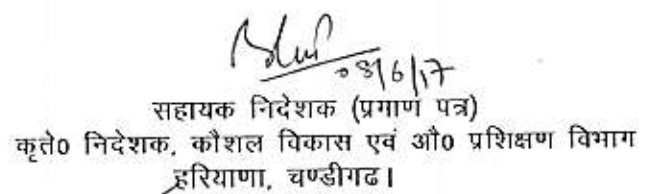 08/6/17
सहायक निदेशक (प्रमाण पत्र)
कृते० निदेशक, कौशल विकास एवं औ० प्रशिक्षण विभाग
हरियाणा, चण्डीगढ।